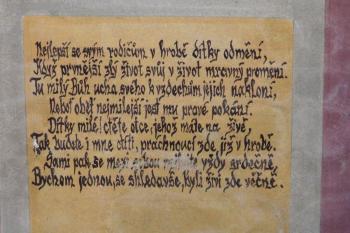 Nejlepší se svým rodičům v hrobě dítky odmění,
Když prvnější zlý život svůj v život mravný promění.
Tu milý Bůh ucha svého k vzdechům jejich nakloní,
Neboť oběť nejmilejší jest mu pravé pokání.
Dítky milé! ctěte otce, jehož máte na živě,
Tak budete i mne ctíti, práchnoucí zde již v hrobě.
Sami pak se mezi sebou vždy srdečně,
Bychom jednou, se shledavše, byli živi zde věčně.